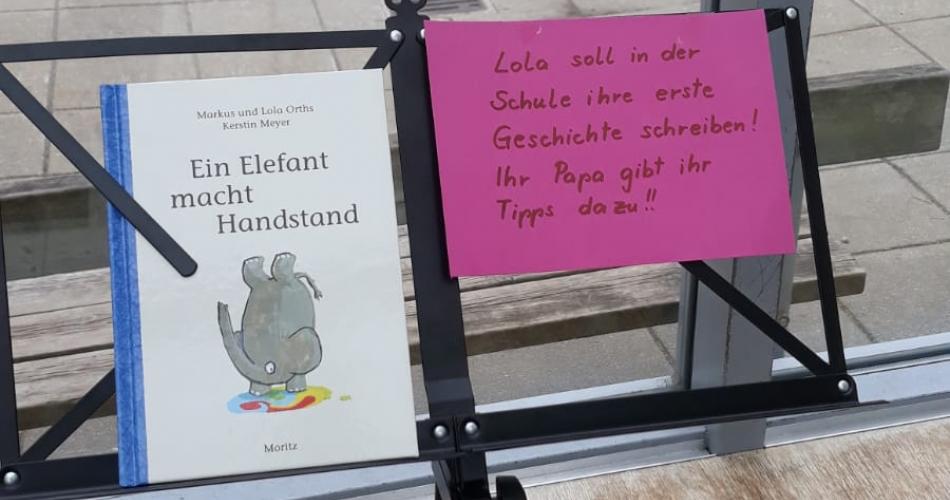 Markus und Lola Orths
Kerstin Meyer
Ein Elefant
macht
Handstand
Moritz
Lola soll in der
Schule ihre erste
Geschichte schreiben!
Ihr Papa gibt ihr
Tipps dazu!!